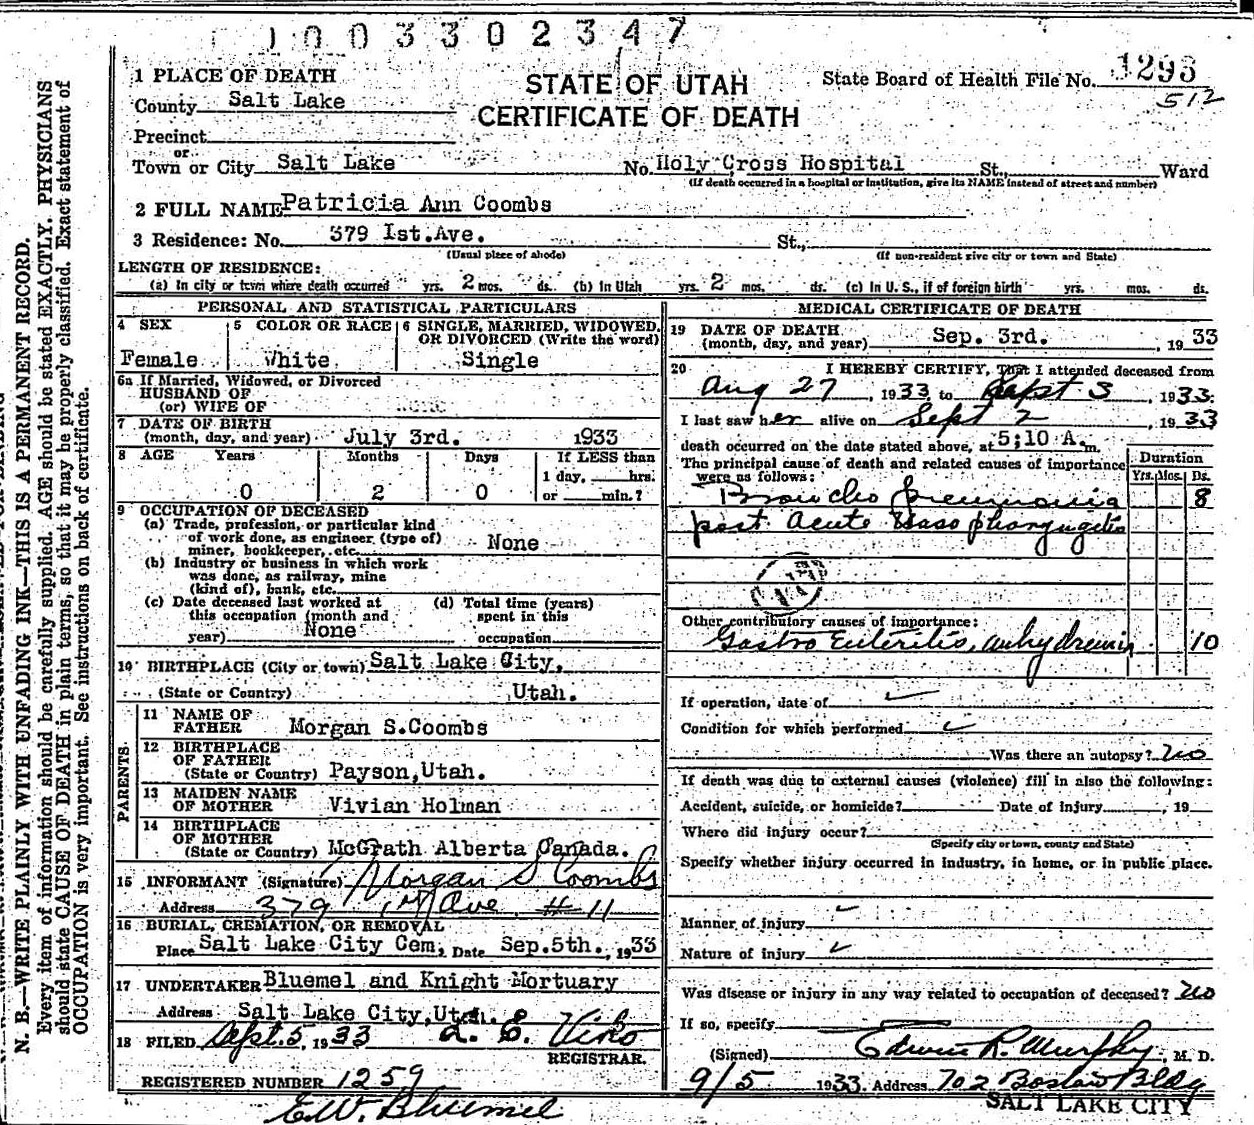 1003302347
1 PLACE OF DEATH
STATE OF UTAH
CERTIFICATE OF DEATH
State Board of Health File No. 1293
512
County Salt Lake
Precinct
or
Town or City Salt Lake No. Holy Cross Hospital St., Ward
(If death occurred in a hospital or institution, give its NAME instead of street and number)
2 FULL NAME Patricia Ann Coombs
3 Residence: No. 379 Ist.Ave. St.,
(Usual place of abode) (If non-resident give city or town and State)
LENGTH OF RESIDENCE:
(a) In city or town where death occurred yrs. 2 mos. ds. (b) In Utah yrs. 2 mos. ds. (c) In U. S., if of foreign birth yrs. mos. ds.
PERSONAL AND STATISTICAL PARTICULARS
4 SEX 5 COLOR OR RACE 6 SINGLE, MARRIED, WIDOWED, OR DIVORCED (Write the word)
Female White Single
6a If Married, Widowed, or Divorced
HUSBAND OF
(or) WIFE OF
7 DATE OF BIRTH
(month, day, and year) July 3rd. 1933
8 AGE Years Months Days If LESS than
1 day, hrs.
0 2 0 or min.?
9 OCCUPATION OF DECEASED
(a) Trade, profession, or particular kind
of work done, as engineer (type of)
miner, bookkeeper, etc. None
(b) Industry or business in which work
was done, as railway, mine
(kind of), bank, etc.
(c) Date deceased last worked at (d) Total time (years)
this occupation (month and spent in this
year) None occupation
10 BIRTHPLACE (City or town) Salt Lake City,
(State or Country) Utah.
PARENTS
11 NAME OF
FATHER Morgan S.Coombs
12 BIRTHPLACE
OF FATHER
(State or Country) Payson,Utah.
13 MAIDEN NAME
OF MOTHER Vivian Holman
14 BIRTHPLACE
OF MOTHER
(State or Country) McGrath Alberta Canada.
15 INFORMANT (Signature) Morgan S Coombs
Address 379 1st Ave #11
16 BURIAL, CREMATION, OR REMOVAL
Place Salt Lake City Cem, Date Sep.5th., 1933
17 UNDERTAKER Bluemel and Knight Mortuary
Address Salt Lake City,Utah.
18 FILED Sept. 5, 1933
REGISTRAR.
REGISTERED NUMBER 1259
E.W. Bluemel
MEDICAL CERTIFICATE OF DEATH
19 DATE OF DEATH
(month, day, and year) Sep. 3rd., 1933
20 I HEREBY CERTIFY, That I attended deceased from
Aug 27, 1933, to Sept 3, 1933:
I last saw her alive on Sept 2, 1933
death occurred on the date stated above, at 5;10 A.m.
The principal cause of death and related causes of importance
were as follows:
Duration
Yrs. Mos. Ds.
Broncho pneumonia 8
post Acute Naso pharyngitis
Other contributory causes of importance:
Gastro Enteritis, anhydremia 10
If operation, date of
Condition for which performed
Was there an autopsy? no
If death was due to external causes (violence) fill in also the following:
Accident, suicide, or homicide? Date of injury , 19
Where did injury occur?
(Specify city or town, county and State)
Specify whether injury occurred in industry, in home, or in public place.
Manner of injury
Nature of injury
Was disease or injury in any way related to occupation of deceased? no
If so, specify
(Signed) Edwin R. Murphy, M. D.
9/5 1933 Address 702 Boston Bldg
SALT LAKE CITY
N. B.—WRITE PLAINLY WITH UNFADING INK—THIS IS A PERMANENT RECORD.
Every item of information should be carefully supplied. AGE should be stated EXACTLY. PHYSICIANS
should state CAUSE OF DEATH in plain terms, so that it may be properly classified. Exact statement of
OCCUPATION is very important. See instructions on back of certificate.